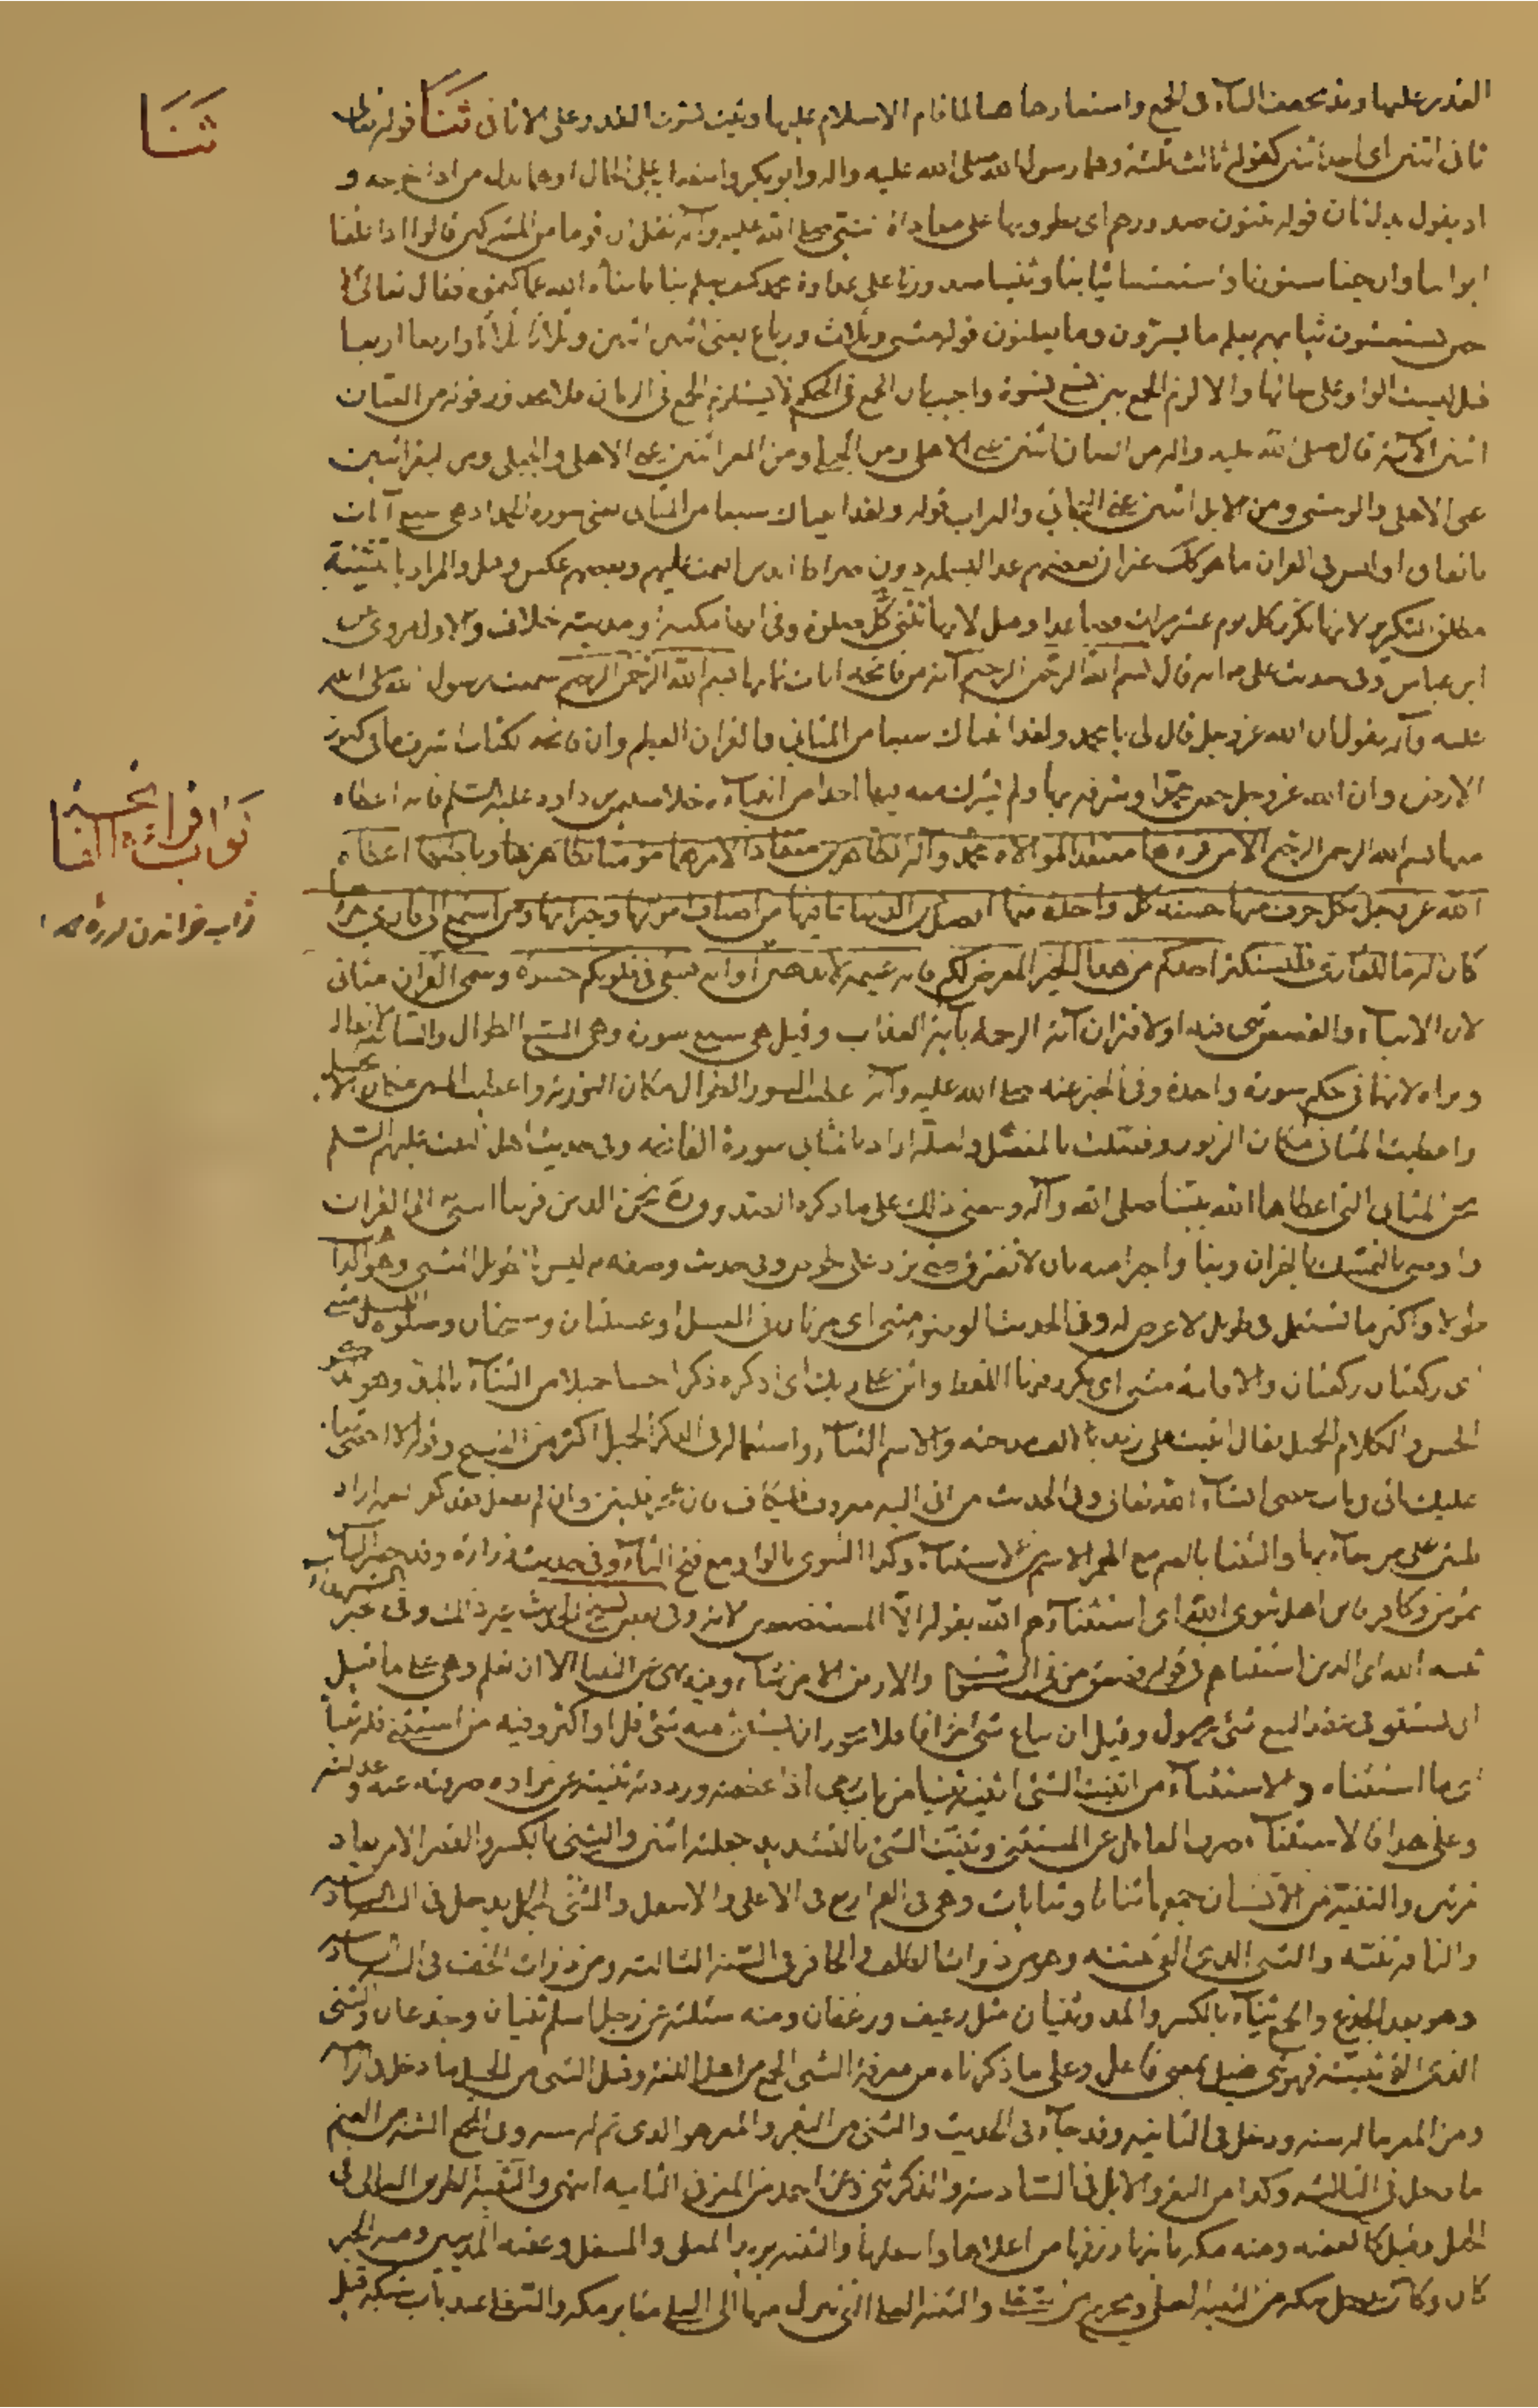 القدر عليها وقد تخفف الياء فى الجمع واستعارها هنا لما قام الاسلام عليها وثبت ثبوت القدر على الاثافى ثنا قوله تعالى
ثانى اثنين اى احد اثنين كقوله ثالث ثلثة وهما رسول الله صلى الله عليه واله وابو بكر وانتصابه على الحال او هما بدل من اذ اخرجه و
اذ يقول بدل ثان قوله يثنون صدورهم اى يطوونها على معاداة النبى صلى الله عليه وآله نقل ان قوما من المشركين قالوا اذا غلقنا
ابوابنا وارخينا ستورنا واستغشينا ثيابنا وثنينا صدورنا على عداوة محمد كيف يعلم بنا فانبأه الله عما كتموه فقال تعالى الا
حين يستغشون ثيابهم يعلم ما يسرون وما يعلنون قوله مثنى وثلاث ورباع يعنى اثنين اثنين وثلاثا ثلاثا واربعا اربعا
قيل ليست الواو على حالها والا لزم الجمع بين تسع نسوة واجيب بان الجمع فى الحكم لا يستلزم الجمع فى الزمان فلا محذور قوله من الضان
اثنين الآية قال صلى الله عليه واله من الضان اثنين عنى الاهلى ومن الجبلى ومن المعز اثنين عنى الاهلى والجبلى ومن البقر اثنين
عنى الاهلى والوحشى ومن الابل اثنين عنى البخاتى والعراب قوله ولقد اتيناك سبعا من المثانى يعنى سورة الحمد اذ هى سبع آيات
باتفاق او ليس فى القران ما هو كذلك غير ان بعضهم عد البسملة دون صراط الذين انعمت عليهم وبعضهم عكس وقيل والمراد بالتثنية
مطلق التكرير لانها تكرر كل يوم عشر مرات فصاعدا وقيل لانها تثنى كل صلوة وفى انها مكية او مدينة خلاف والاول مروى عن
ابن عباس وفى حديث على ع انه قال بسم الله الرحمن الرحيم آية من فاتحة ايات تمامها بسم الله الرحمن الرحيم سمعت رسول الله صلى الله
عليه وآله يقول ان الله عز وجل قال لى يا محمد ولقد اتيناك سبعا من المثانى والقران العظيم وان فاتحة الكتاب اشرف ما فى كنوز
الارض وان الله عز وجل خص محمدا وشرفه بها ولم يشرك معه فيها احدا من انبيآئه خلا سليمن بن داود عليه السلم فانه اعطاه
منها بسم الله الرحمن الرحيم الا من قرءها معتقدا لموالاة محمد وآله الطاهرين منقادا لامرهما مؤمنا بظاهرهما وباطنهما اعطاه
الله عز وجل بكل حرف منها حسنة كل واحدة منها افضل من الدنيا بما فيها من اصناف موالها وخيراتها ومن استمع الى قارئ يقرءها
كان له ما للقارئ فليستكثر احدكم من هذا الخير المعرض لكم فانه غنيمة لا يذهبن اوانه فيبقى فى قلوبكم حسرة وسمى القران مثانى
لان الانباء والقصص تثنى فيه او لاقتران آية الرحمة بآية العذاب وقيل هى سبع سور وهى السبع الطوال والسابعة الانفال
وبراءة لانهما فى حكم سورة واحدة وفى الخبر عنه صلى الله عليه وآله اعطيت السور الطوال مكان التورية واعطيت المئين مكان الانجيل
واعطيت المثانى مكان الزبور وفضلت بالمفصل ولعله اراد بالمثانى سورة الفاتحة وفى حديث اهل البيت عليهم السلم
نحن المثانى التى اعطاها الله نبينا صلى الله عليه وآله ومعنى ذلك على ما ذكره الصدوق ره نحن الذين قرننا النبى الى القران
واوصى بالتمسك بالقران وبنا واخبر امته بان لا نفترق حتى نرد على الحوض وفى حديث وصفه ع ليس بالطويل المتثنى وهو الذاهب
طولا واكثر ما تستعمل فى طويل لا عرض له وفى الحديث الوضوء مثنى اى مرتان فى الغسل او غسلتان ومسحتان وصلوة الليل مثنى مثنى
اى ركعتان ركعتان والاقامة مثنى اى يكرر فيها اللفظ واثن على ربك اى اذكره ذكرا حسنا جميلا من الثناء بالمد وهو الذكر
الحسن والكلام الجميل يقال اثنيت على زيد بالالف مدحته والاسم الثناء واستعماله فى الذكر الجميل اكثر من القبيح وقوله لا احصى ثناء
عليك اتى فى باب حصى الثناء انشاء الله تعالى وفى الحديث من اتى اليه معروف فليكاف فان عجز فليثن وان لم يفعل فقد كفر نعمة اراد
فليثن على من جاء بها والثنيا بالضم مع الياء الاسم من الاستثناء وكذا الثنوى بالواو مع فتح الثاء وفى حديث زرارة وقد حصر الناس
بمؤمن وكافر فاين اهل ثنوى الله اى استثناءهم الله بقوله الا المستضعفين الآية وفى بعض نسخ الحديث غير ذلك وفى خبر الشهداء
ثنية الله اى الذين استثناهم فى قوله فصعق من فى السموات والارض الا من شاء وفيه نهى عن الثنيا الا ان تعلم وهى على ما قيل
ان يستثنى فى عقد البيع شئ مجهول وقيل ان يباع شئ جزافا فلا يجوز ان يستثنى منه شئ قل او اكثر وفيه من استثنى فله ثنياه
اى ما استثناه والاستثناء من اثنيت الشئ اثنيه ثنيا من باب رمى اذا عطفته ورددته وثنيته عن مراده صرفته عنه و
وعلى هذا فالاستثناء صرف العامل عن المستثنى وثنيت الشئ بالتشديد جعلته اثنين والثنى بالكسر والقصر الامر يعاد
مرتين والثنية من الاسنان جمعها ثنايا وثنايات وهى فى الفم اربع فى الاعلى والاسفل والثنى الجمل يدخل فى السنة السادسة
والناقة ثنية والثنى الذى القى ثنيته وهو من ذوات الظلف والحافر فى السنة الثالثة ومن ذوات الخف فى السنة السادسة
وهو بعد الجذع والجمع ثناء بالكسر والمد وثنيان مثل رغيف ورغفان ومنه سئلته عن رجل اسلم ثنيان وجذعان والثنى
الذى القى ثنيته فهو ثنى فعيل بمعنى فاعل وعلى ما ذكرناه من معرفة الثنى الجمع من اهل اللغة وقيل الثنى من الخيل ما دخل فى الرابعة
ومن المعز ما له سنة ودخل فى الثانية وقد جاء فى الحديث والثنى من البقر والمعز هو الذى تم له سنة وفى المجمع الثنية من الغنم
ما دخل فى الثالثة وكذا من البقر والابل فى السادسة والذكر ثنى وعن احمد من المعز فى الثانية انتهى والثنية الطريق العالى فى
الجبل وقيل كالعقبة ومنه مكة يأتيها رزقها من اعلاها واسفلها والثنية يريد المعلى والمسفل وعقبة المدنيين ومنه الخبر
كان ع يدخل مكة من الثنية العليا ويخرج من السفلى والثنية العليا التى ينزل منها الى المعلى مقابر مكة والسفلى عند باب شبيكة قيل
ثنا
ثواب قراءة الفاتحة
ثواب خواندن سوره حمد